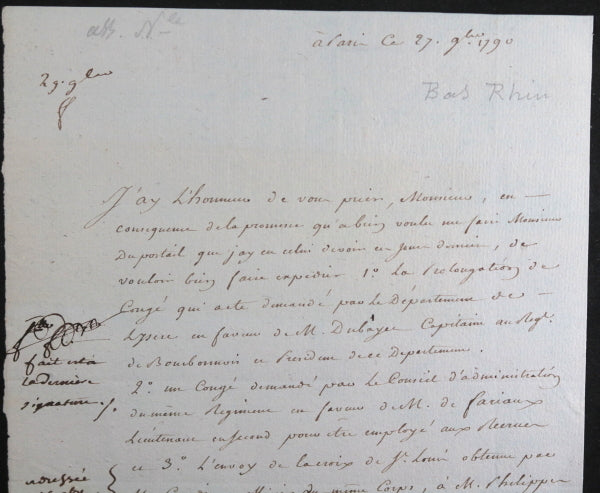 à Paris Ce 27. 9bre 1790
29. 9bre
Bas Rhin
J'ay L'honneur de vous prier, Monsieur, en
consequence de la promesse qu'a bien voulu me faire Monsieur
Duportail que j'ay eu celui de voir ces jours derniers, de
vouloir bien faire expedier 1º. La Prolongation de
Congé qui a eté demandé par le Département de
L'ysere en faveur de M. Dubayet Capitaine au Regt.
de Bourbonnois et President de ce Departement.
2º un Congé demandé par le Conseil d'administration
du même Regiment en faveur de M. de Fariaux
Lieutenant en second pour être employé aux Recrues
et 3º. L'envoy de la croix de St. Louis obtenue par
du même Corps, à M. Philippe
fait est à
la derniere
signature.
adressée